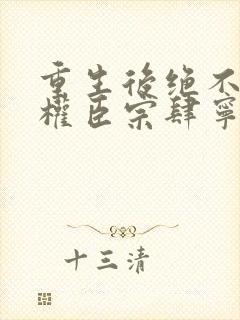 重生後绝不
權臣宗肆寧
十三清